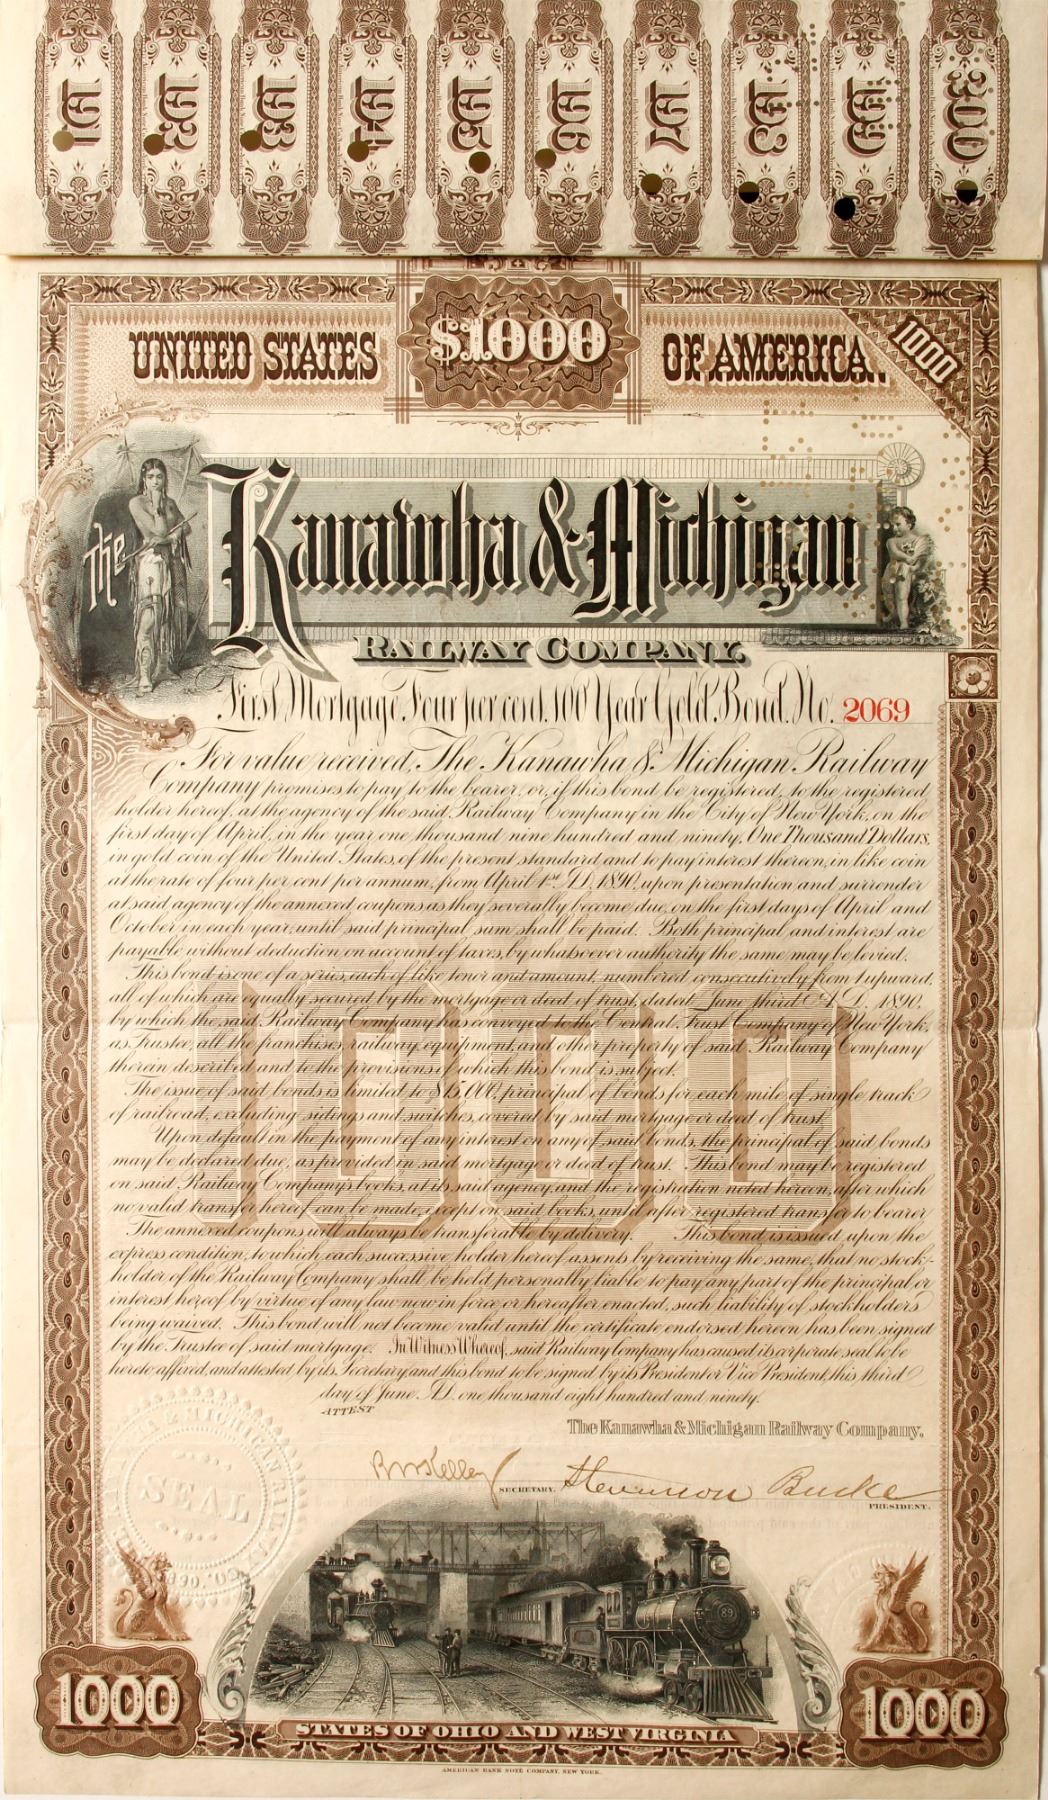 191
192
193
194
195
196
197
198
199
200
UNITED STATES $1000 OF AMERICA.
1000
The Kanawha & Michigan
RAILWAY COMPANY.
First Mortgage Four per cent. 100 Year Gold Bond. No. 2069
For value received, The Kanawha & Michigan Railway
Company promises to pay to the bearer, or, if this bond be registered, to the registered
holder hereof, at the agency of the said Railway Company in the City of New York, on the
first day of April, in the year one thousand nine hundred and ninety, One Thousand Dollars,
in gold coin of the United States, of the present standard and to pay interest thereon, in like coin
at the rate of four per cent per annum, from April 1st A.D. 1890, upon presentation and surrender
at said agency of the annexed coupons as they severally become due, on the first days of April and
October in each year, until said principal sum shall be paid. Both principal and interest are
payable without deduction on account of taxes, by whatsoever authority the same may be levied.
This bond is one of a series, each of like tenor and amount, numbered consecutively from 1 upward,
all of which are equally secured by the mortgage or deed of trust, dated June third A.D. 1890,
by which the said Railway Company has conveyed to the Central Trust Company of New York,
as Trustee, all the franchises, railway equipment, and other property of said Railway Company
therein described and to the provisions of which this bond is subject.
The issue of said bonds is limited to $15,000, principal of bonds for each mile of single track
of railroad, excluding sidings and switches, covered by said mortgage or deed of trust.
Upon default in the payment of any interest on any of said bonds, the principal of said bonds
may be declared due, as provided in said mortgage or deed of trust. This bond may be registered
on said Railway Company's books, at its said agency, and the registration noted hereon, after which
no valid transfer hereof can be made, except on said books, until after registered transfer to bearer
The annexed coupons will always be transferable by delivery. This bond is issued upon the
express condition, to which each successive holder hereof assents by receiving the same, that no stock-
holder of the Railway Company shall be held personally liable to pay any part of the principal or
interest hereof by virtue of any law now in force or hereafter enacted, such liability of stockholders
being waived. This bond will not become valid until the certificate endorsed hereon has been signed
by the Trustee of said mortgage. In Witness Whereof, said Railway Company has caused its corporate seal to be
hereto affixed, and attested by its Secretary and this bond to be signed by its President or Vice President, this third
day of June A.D. one thousand eight hundred and ninety.
ATTEST
The Kanawha & Michigan Railway Company.
SECRETARY.
Stevenson Burke
PRESIDENT.
SEAL
89
1000
1000
STATES OF OHIO AND WEST VIRGINIA
AMERICAN BANK NOTE COMPANY, NEW YORK.